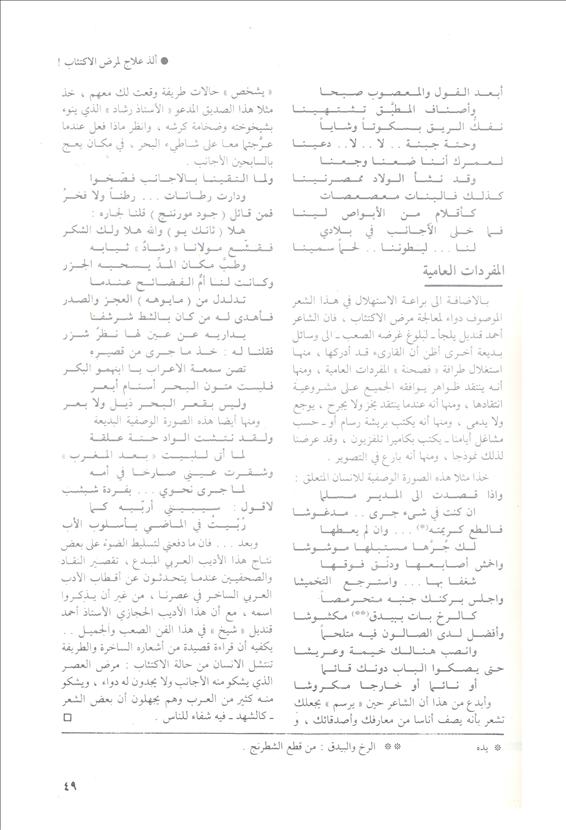 ● ألذ علاج لمرض الاكتئاب !
أبعد الفول والمعصوب صبحا
وأصناف المطبَّق تشتهينا
نفك الريق بسكوتاً وشاياً
وحتة جبنة .. لا .. لا .. دعينا
لعمرك أننا ضعنا وجعنا
وقد نشأ الولاد ممصرنينا
كذلك فالبنات معصعصات
كأقلام من الأبواص لينا
فما خلى الأجانب في بلادي
لنا ... لبطوننا .. لحماً سمينا
المفردات العامية
بالاضافة الى براعة الاستهلال في هذا الشعر
الموصوف دواء لمعالجة مرض الاكتئاب ، فان الشاعر
أحمد قنديل يلجأ ـ لبلوغ غرضه الصعب ـ الى وسائل
بديعة أخرى أظن أن القارىء قد أدركها ، منها
استغلال طرافة « فصحنة » المفردات العامية ، ومنها
أنه ينتقد ظواهر يوافقه الجميع على مشروعية
انتقادها ، ومنها أنه عندما ينتقد يخز ولا يجرح ، يوجع
ولا يدمى ، ومنها أنه يكتب بريشة رسام أو ـ حسب
مشاغل أيامنا ـ يكتب بكاميرا تلفزيون ، وقد عرضنا
لذلك نموذجاً ، ومنها أنه بارع في التصوير .
خذا مثلا هذه الصورة الوصفية للانسان المتعلق :
واذا قصدت الى المدير مسلما
ان كنت في شىء جرى .. مدغوشا
فالطع كريمته(*) ... وان لم يعطها
لك جُرَّها مستبلها موشوشا
واخمش أصابعها ودنق فوقها
شغفا بها ... واسترجع التخميشا
واجلس بركنك جنبه متحرمصاً
كالرخ بات ببيدق(**) مكشوشا
وأفضل لدى الصالون فيه متلحماً
وانصب هنالك خيمة وعريشا
حتى يصكوا الباب دونك قائما
أو نائما أو خارجا مكروشا
وأبدع من هذا أن الشاعر حين « يرسم » يجعلك
تشعر بأنه يصف أناسا من معارفك وأصدقائك ، و
« يشخص » حالات طريفة وقعت لك معهم ، خذ
مثلا هذا الصديق المدعو « الأستاذ رشاد » الذي ينوء
بشيخوخته وضخامة كرشه ، وانظر ماذا فعل عندما
عرَّجتما معا على شاطىء البحر ، في مكان يعج
بالسابحين الأجانب .
ولما التقينا بالاجانب فضَّخوا
ودارت رطانات ... رطناً ولا فخرُ
فمن قائل ( جود مورننج ) قلنا لجاره :
هلا ( ثانك يو ) والله هلا ولك الشكر
فقشّع مولانا « رشادُ » ثيابه
وطبَّ مكان المدِّ يسحبه الجزر
وكانت لنا أمُّ الفضائح عندما
تدلدل من ( مايوهه ) العجز والصدر
فأهدى له من كان بالشط شرشفنا
يداريه عن عين لها نظرٌ شزر
فقلنا له : خذ ما جرى من قصيره
تصن سمعة الاعراب يا ابنهمو البكر
فليست متون البحر أسنام أبعر
وليس بقعر البحر ذيل ولا بعر
ومنها أيضا هذه الصورة الوصفية البديعة
ولقد نتشت الواد حتة علقة
لما أتى للبيت « بعد المغرب »
وشقرت عيني صارخا في أمه
لما جرى نحوي ... بفردة شبشب
لاقول : سيبيني أربّيه كما
رُبّيتُ في الماضي بأسلوب الأب
وبعد ... فان ما دفعني لتسليط الضوء على بعض
نتاج هذا الأديب العربي المبدع ، تقصير النقاد
والصحفيين عندما يتحدثون عن أقطاب الأدب
العربي الساخر في عصرنا ، من غير أن يذكروا
اسمه ، مع أن هذا الأديب الحجازي الأستاذ أحمد
قنديل « شيخ » في هذا الفن الصعب والجميل ..
يكفيه أن قراءة قصيدة من أشعاره الساخرة والطريفة
تنتشل الانسان من حالة الاكتئاب : مرض العصر
الذي يشكو منه الأجانب ولا يجدون له دواء ، ويشكو
منه كثير من العرب وهم يجهلون أن بعض الشعر
ـ كالشهد ـ فيه شفاء للناس .
* يده ** الرخ والبيدق : من قطع الشطرنج .
٤٩